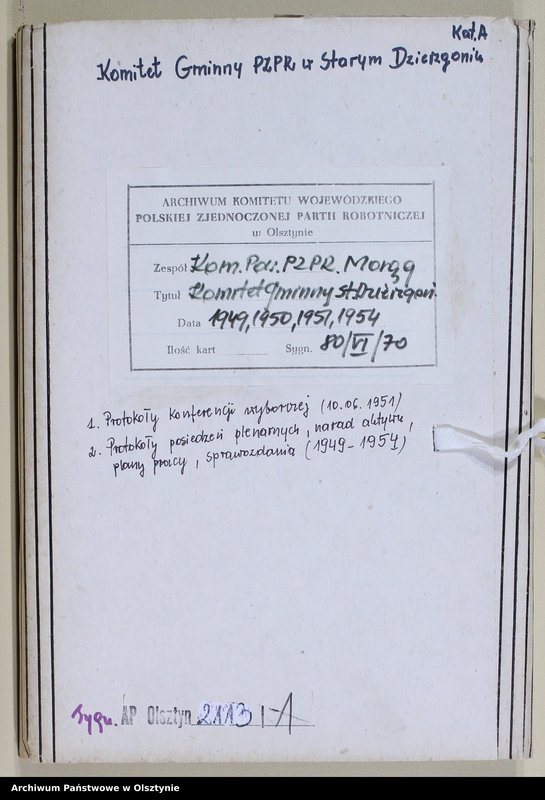 Kat. A
Komitet Gminny PZPR w Starym Dzierzgoniu
ARCHIWUM KOMITETU WOJEWÓDZKIEGO
POLSKIEJ ZJEDNOCZONEJ PARTII ROBOTNICZEJ
w Olsztynie
Zespół Kom. Pow. PZPR. Morąg
Tytuł Komitet Gminny St. Dzierzgoń.
Data 1949, 1950, 1951, 1954
Ilość kart Sygn. 80/VI/70
1. Protokoły konferencji wyborczej (10.06.1951)
2. Protokoły posiedzeń plenarnych, narad aktywu,
plany pracy, sprawozdania (1949-1954)
Sygn. AP Olsztyn 2113 | A
Archiwum Państwowe w Olsztynie